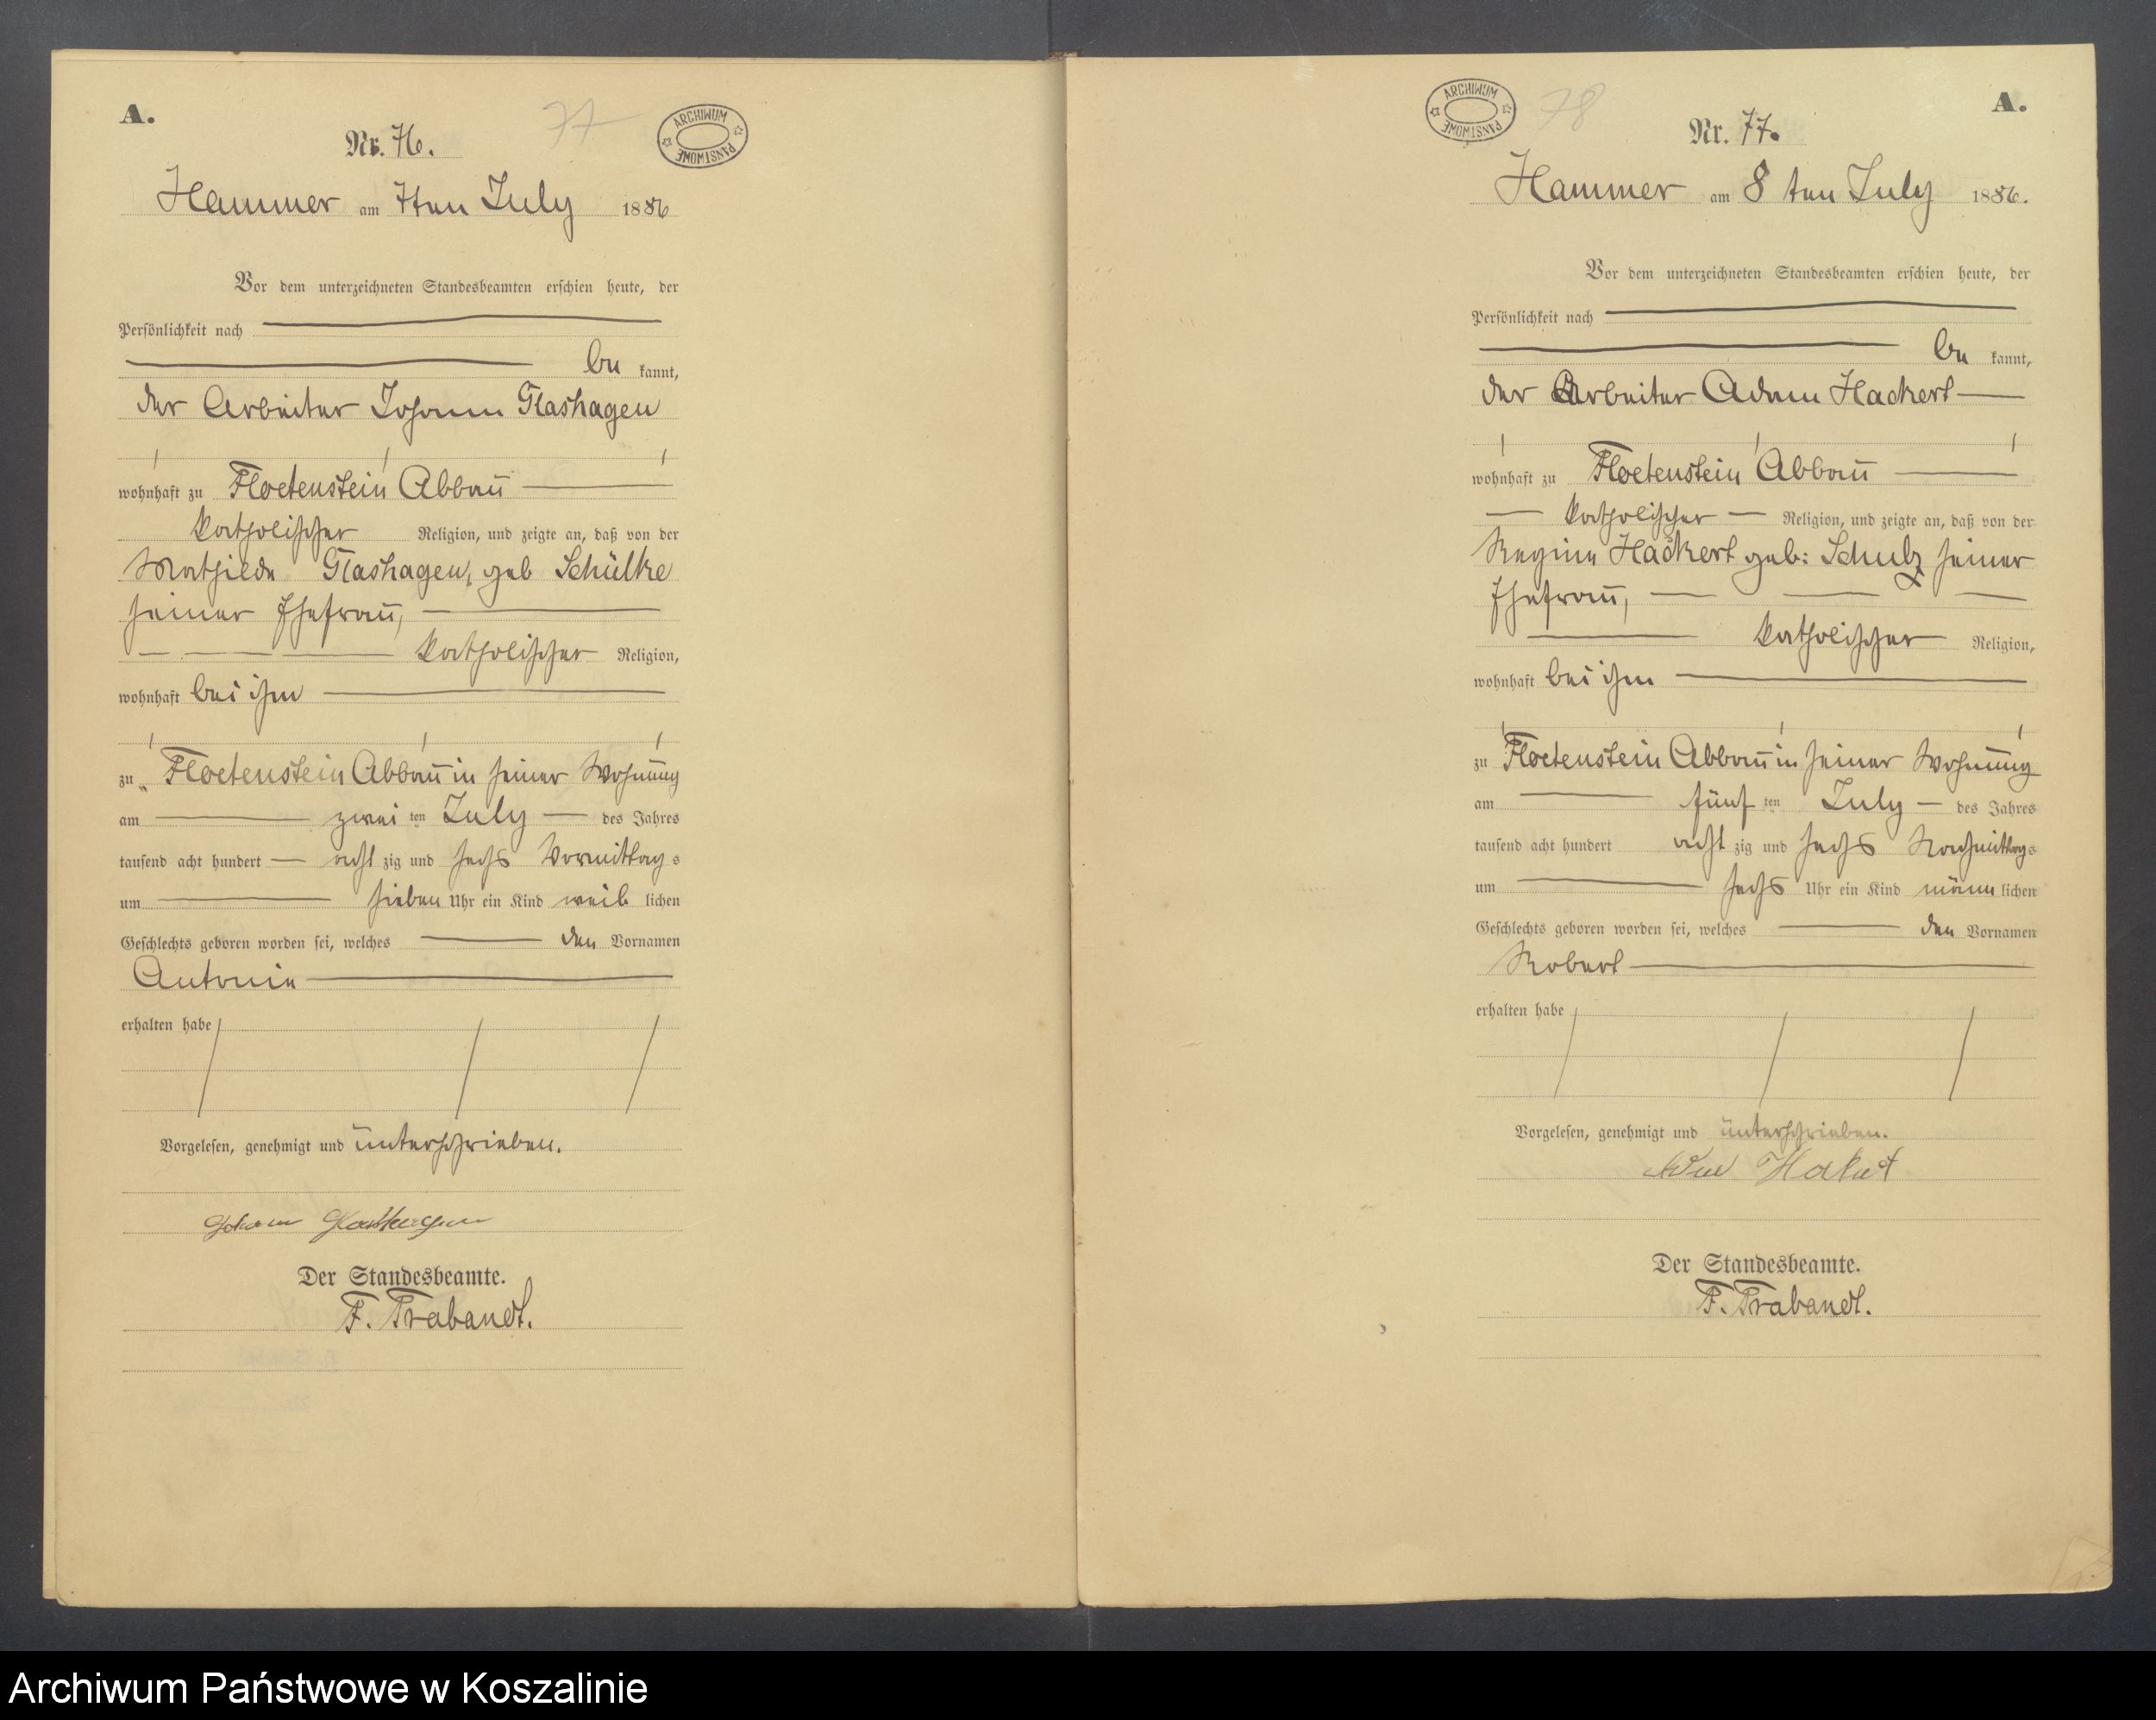 A.
77
ARCHIWUM PAŃSTWOWE
Nr. 76.
Hammer am 7ten July 1886
Vor dem unterzeichneten Standesbeamten erschien heute, der
Persönlichkeit nach
be kannt,
der Arbeiter Johann Glashagen
wohnhaft zu Floetenstein Abbau
katholischer Religion, und zeigte an, daß von der
Mathilde Glashagen, geb Schülke
seiner Ehefrau,
katholischer Religion,
wohnhaft bei ihm
zu Floetenstein Abbau in seiner Wohnung
am zwei ten July des Jahres
tausend acht hundert acht zig und sechs Vormittag s
um sieben Uhr ein Kind weib lichen
Geschlechts geboren worden sei, welches den Vornamen
Antonie
erhalten habe
Vorgelesen, genehmigt und unterschrieben.
Johann Glashagen
Der Standesbeamte.
F. Trabandt.
A.
ARCHIWUM PAŃSTWOWE
78
Nr. 77.
Hammer am 8 ten July 1886.
Vor dem unterzeichneten Standesbeamten erschien heute, der
Persönlichkeit nach
be kannt,
der Arbeiter Adam Hackert
wohnhaft zu Floetenstein Abbau
katholischer Religion, und zeigte an, daß von der
Regine Hackert geb: Schulz seiner
Ehefrau,
katholischer Religion,
wohnhaft bei ihm
zu Floetenstein Abbau in seiner Wohnung
am fünf ten July des Jahres
tausend acht hundert acht zig und sechs Nachmittags
um sechs Uhr ein Kind männ lichen
Geschlechts geboren worden sei, welches den Vornamen
Robert
erhalten habe
Vorgelesen, genehmigt und unterschrieben.
Hakert
Der Standesbeamte.
F. Trabandt.
Archiwum Państwowe w Koszalinie